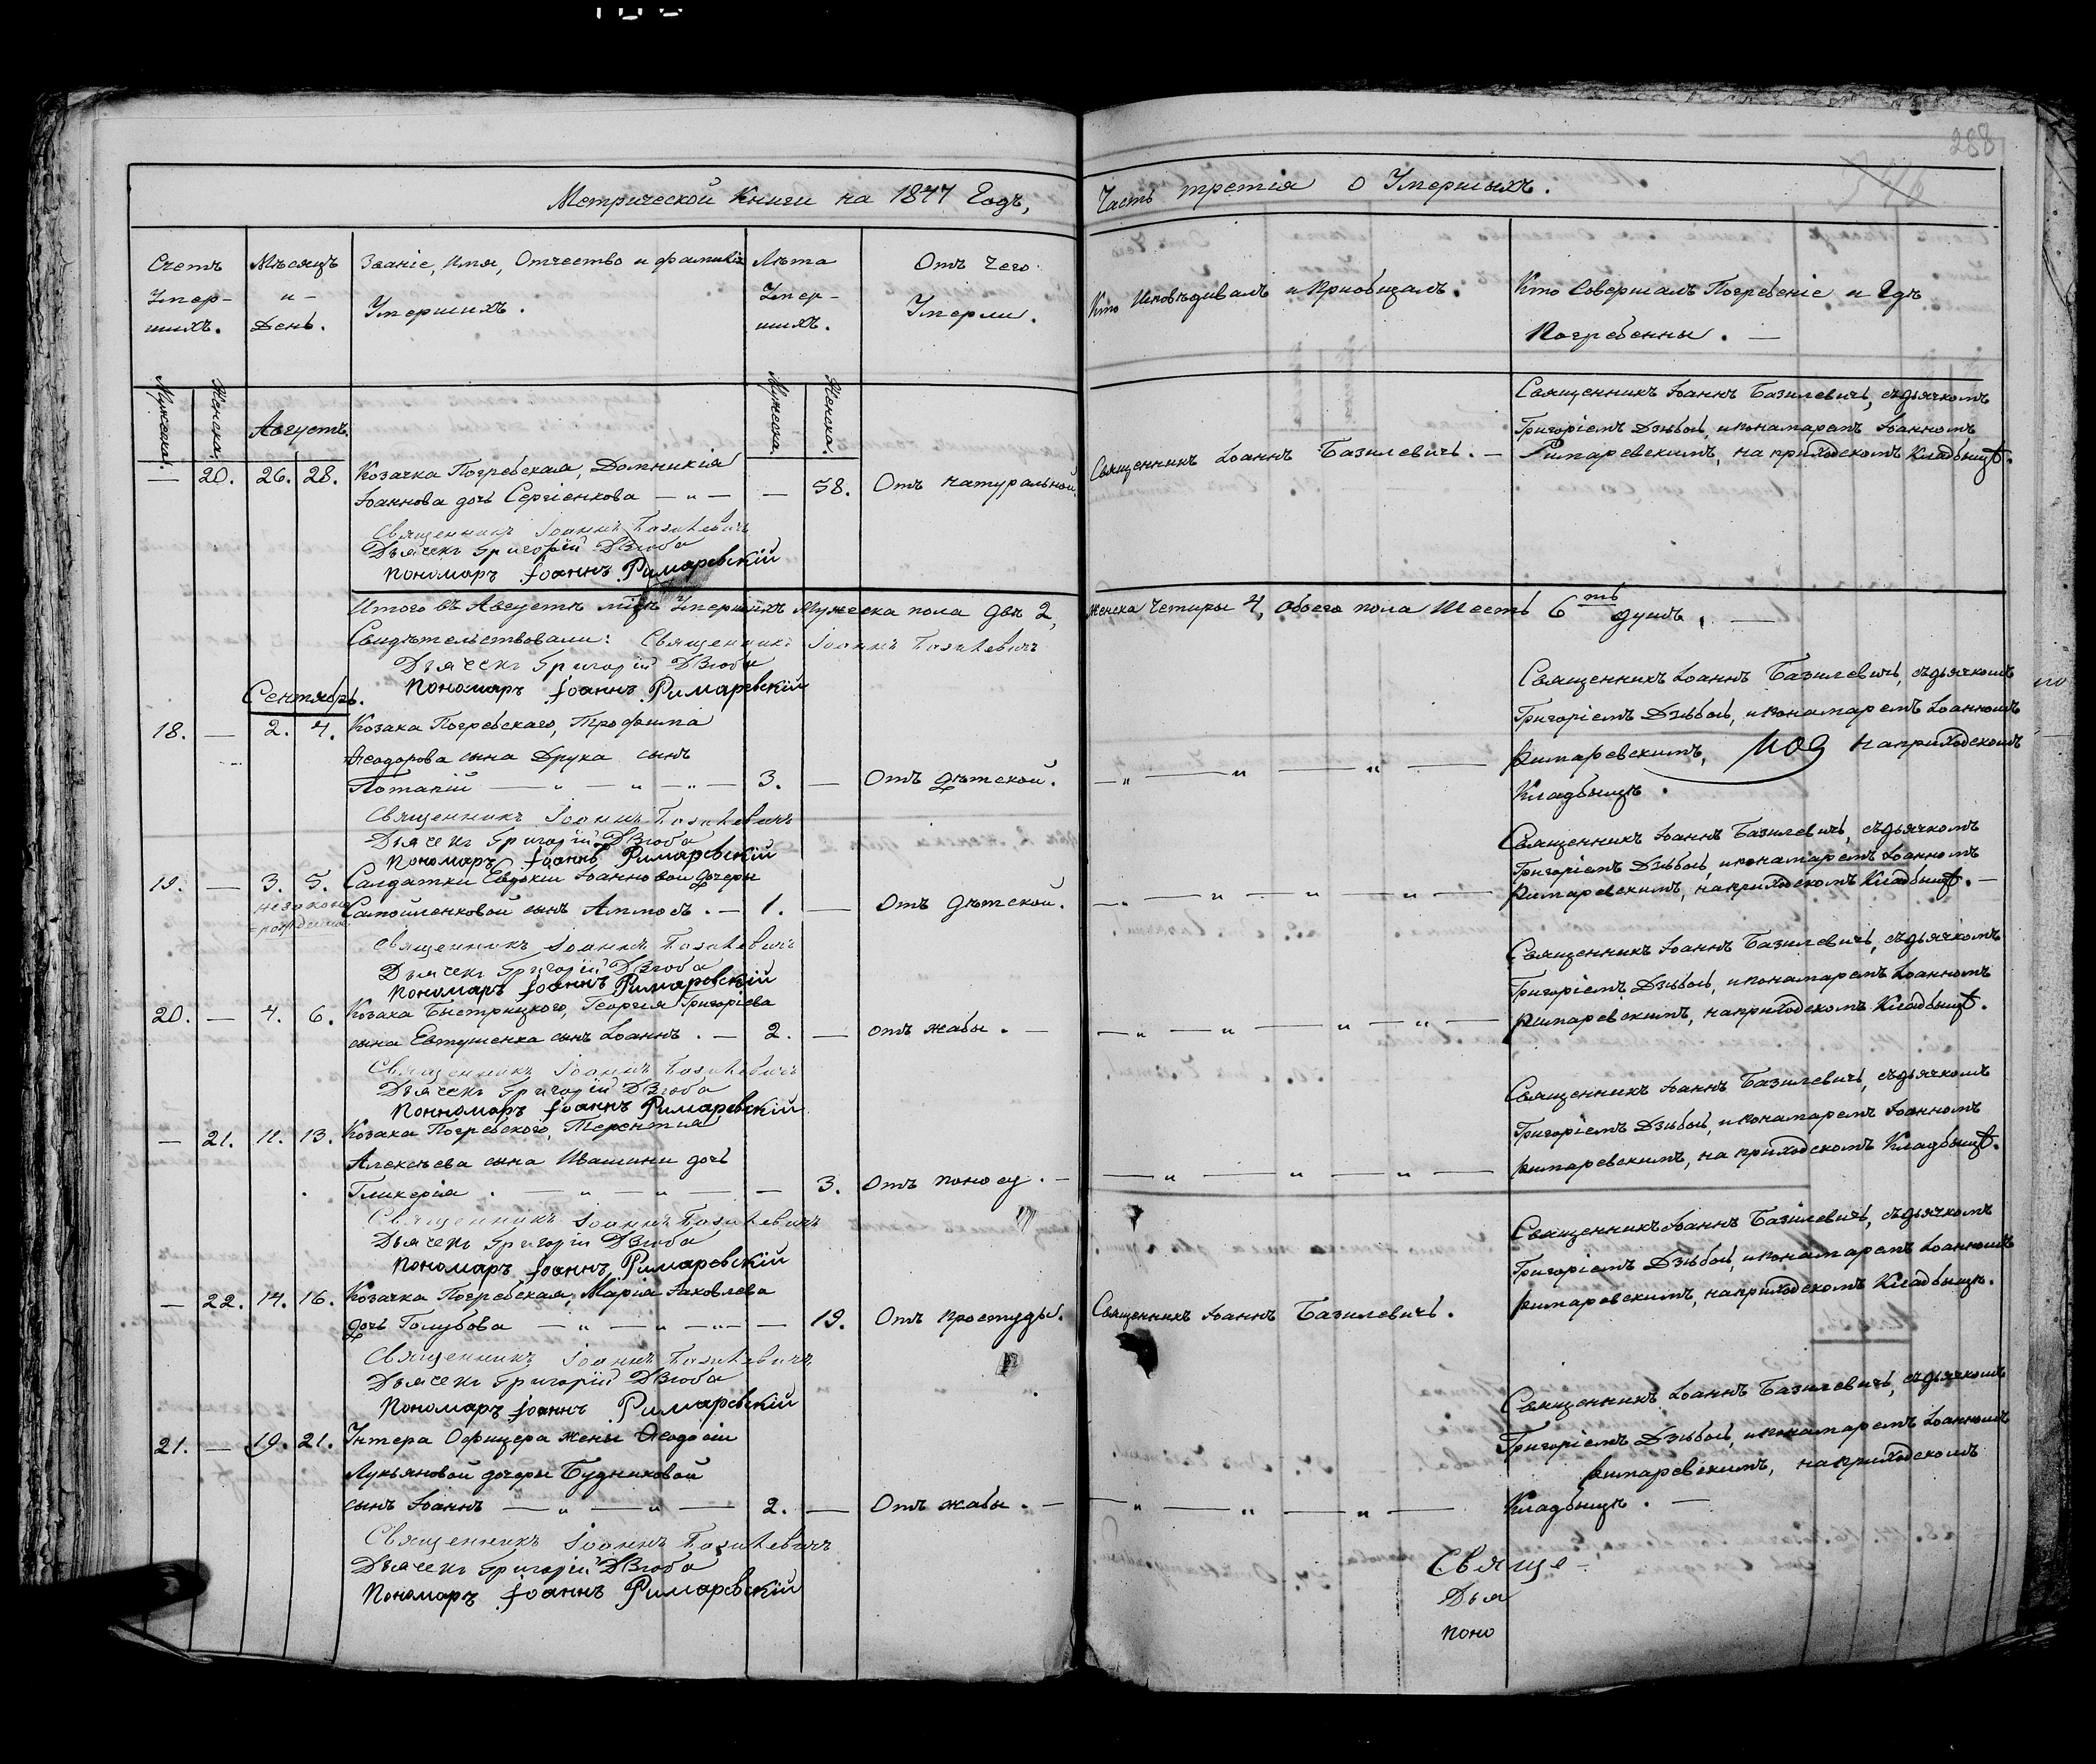 288
Метрической Книги на 1847 Годъ,
Часть третія о Умершыхъ.
Счетъ Умер-шихъ.
Мѣсяцъ и День.
Званіе, Имя, Отчество и фамилія Умершихъ.
Лѣта Умер-шихъ.
Отъ Чего Умерли.
Кто Исповѣдивалъ и Приобщалъ.
Кто Совершалъ Погребеніе и Гдѣ Погребенны. —
Мужеска.
Женска.
Августъ.
Мужеска.
Женска.
— 20. 26. 28. Козачка Погребская, Домникія
Іоаннова дочь Сергіенкова — „ — — 58. Отъ натуральной.
Священникъ Іоаннъ Базилевичъ. —
Священникъ Іоаннъ Базилевичъ, съдьячкомъ
Григоріемъ Дзюбой, ипонамаремъ Іоанномъ
Римаревскимъ, на приходскомъ Кладбищѣ.
Священникъ Іоаннъ Базилевичъ
Дьячекъ Григорій Дзюба
Пономаръ Іоаннъ Римаревскій
Итого въ Августѣ мцѣ Умершихъ Мужеска пола два 2, женска Четыри 4, Обоего пола Шесть 6ть душъ. —
Свидѣтельствовали: Священникъ Іоаннъ Базилевичъ
Дьячекъ Григорій Дзюба
Пономаръ Іоаннъ Римаревскій
Сентябрь.
18. — 2. 4. Козака Погребскаго, Трофима
Ѳеодорова сына Друка сынъ
Потапій — „ — „ — „ — 3. — Отъ дѣтской. — „ — „ — „ —
Священникъ Іоаннъ Базилевичъ, съдьячкомъ
Григоріемъ Дзюбой, ипонамаремъ Іоанномъ
Римаревскимъ, наприходскомъ
Кладбищѣ.
Священникъ Іоаннъ Базилевичъ
Дьячекъ Григорій Дзюба
Пономаръ Іоаннъ Римаревскій
19. — 3. 5. Салдатки Евдокіи Іоанновой дочеры
незаконо
-рожденна
Самойленковой сынъ Аммосъ. — 1. — Отъ дѣтской. — „ — „ — „ — „ —
Священникъ Іоаннъ Базилевичъ, съдьячкомъ
Григоріемъ Дзюбой, ипонамаремъ Іоанномъ
Римаревскимъ, наприходскомъ Кладбищѣ. —
Священникъ Іоаннъ Базилевичъ
Дьячекъ Григорій Дзюба
Пономаръ Іоаннъ Римаревскій
20. — 4. 6. Козака Быстрицкого, Георгія Григоріева
сына Евтушенка сынъ Іоаннъ. — 2. — отъ жабы. — — „ — „ — „ — „ —
Священникъ Іоаннъ Базилевичъ, съдьячкомъ
Григоріемъ Дзюбой, ипонамаремъ Іоанномъ
Римаревскимъ, наприходскомъ Кладбищѣ.
Священникъ Іоаннъ Базилевичъ
Дьячекъ Григорій Дзюба
Понномаръ Іоаннъ Римаревскій
— 21. 11. 13. Козака Погребского, Терентия
Алексѣева сына Ивашини дочь
Гликерія. — „ — „ — — 3. Отъ поносу. — — „ — „ — „ —
Священникъ Іоаннъ Базилевичъ, съдьячкомъ
Григоріемъ Дзюбой, ипонамаремъ Іоанномъ
Римаревскимъ, на приходскомъ Кладбищѣ.
Священникъ Іоаннъ Базилевичъ
Дьячекъ Григорій Дзюба
Пономаръ Іоаннъ Римаревскій
— 22. 14. 16. Козачка Погребская, Марія Іаковлева
дочь Голубова — „ — „ — „ — — 19. Отъ простуды. Священникъ Іоаннъ Базилевичъ.
Священникъ Іоаннъ Базилевичъ, съдьячкомъ
Григоріемъ Дзюбой, ипонамаремъ Іоанномъ
Римаревскимъ, наприходскомъ Кладбищѣ.
Священникъ Іоаннъ Базилевичъ
Дьячекъ Григорій Дзюба
Пономаръ Іоаннъ Римаревскій
21. — 19. 21. Унтера Офицера жены Ѳеодосіи
Лукьяновой дочеры Будниковой
сынъ Іоаннъ — „ — „ — 2. — Отъ жабы. — — „ — „ — „ —
Священникъ Іоаннъ Базилевичъ, съдьячкомъ
Григоріемъ Дзюбой, ипонамаремъ Іоанномъ
Римаревскимъ, наприходскомъ
Кладбищѣ. —
Священникъ Іоаннъ Базилевичъ
Дьячекъ Григорій Дзюба
Пономаръ Іоаннъ Римаревскій
Свяще-
Дья
Поно